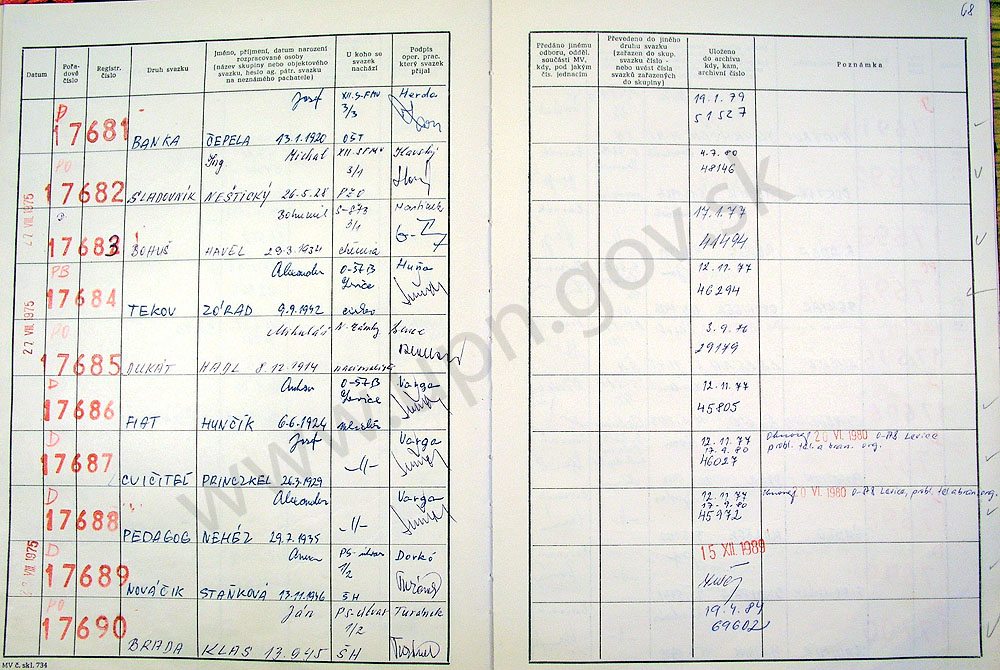 68
Datum
Pořa-
dové
číslo
Registr.
číslo
Druh svazku
Jméno, příjmení, datum narození
rozpracované osoby
(název skupiny nebo objektového
svazku, heslo ag. pátr. svazku
na neznámého pachatele)
U koho se
svazek
nachází
Podpis
oper. prac.
který svazek
přijal
Předáno jinému
odboru, odděl.
součásti MV,
kdy, pod jakým
čís. jednacím
Převedeno do jiného
druhu svazku
(zařazen do skup.
svazku číslo -
nebo uvést čísla
svazků zařazených
do skupiny)
Uloženo
do archivu
kdy, kam,
archivní číslo
Poznámka
D Josef XII.S-FMV Herda
17681 3/3 19.1.79
BANKA ČEPELA 13.1.1920 OŠT 51527
PO Ing. Michal XII.SFMV Hlavský
27 VII. 1975 17682 3/1 4.7.80
SLADOVNÍK NEŠTICKÝ 26.5.28 PZO 48146
Bohumil S-873
17683 3/1 17.1.77
BOHUŠ HAVEL 29.3.1934 chémia 41494
PB Alexander O-ŠTB Huňa
27 VII. 1975 17684 Levice 12.11.77
TEKOV ZÓRAD 9.9.1942 46294
PO Mikuláš N. Zámky
17685 3.9.76
DUKÁT HADL 8.12.1914 29179
Anton O-ŠTB Varga
17686 Levice 12.11.77
FIAT HUNČÍK 6.6.1924 45805
D Josef Varga
17687 -||- 12.11.77 20 VI. 1980 Levice
17.9.80
CVIČITEĽ PRINCZKEL 26.3.1929 46027
D Alexander Varga
17688 -||- 12.11.77 20 VI. 1980 Levice,
17.9.80
PEDAGOG NEHÉZ 29.7.1935 45972
D Anna Dorkó
VIII 1975 17689 1/2 15 XII. 1989
NOVÁČIK STAŇKOVÁ 13.11.1946 ŠH
PO Ján Turánek
17690 1/2 19.4.84
BRADA KLAS 13.9.45 ŠH 69602
MV č. skl. 734
www.upn.gov.sk